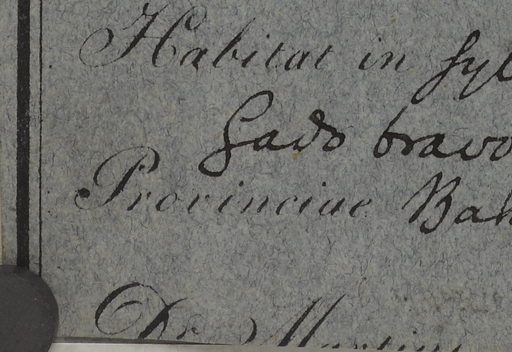 Habitat in syl
Gado bravo
Provinciae Bah
Dr. Martius